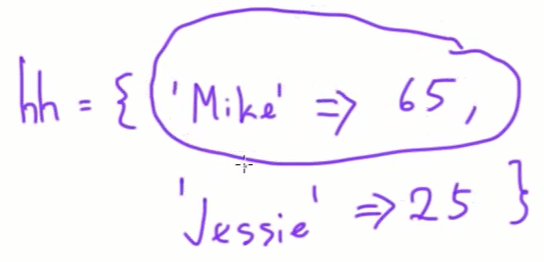 hh = { 'Mike' => 65,
'Jessie' => 25 }